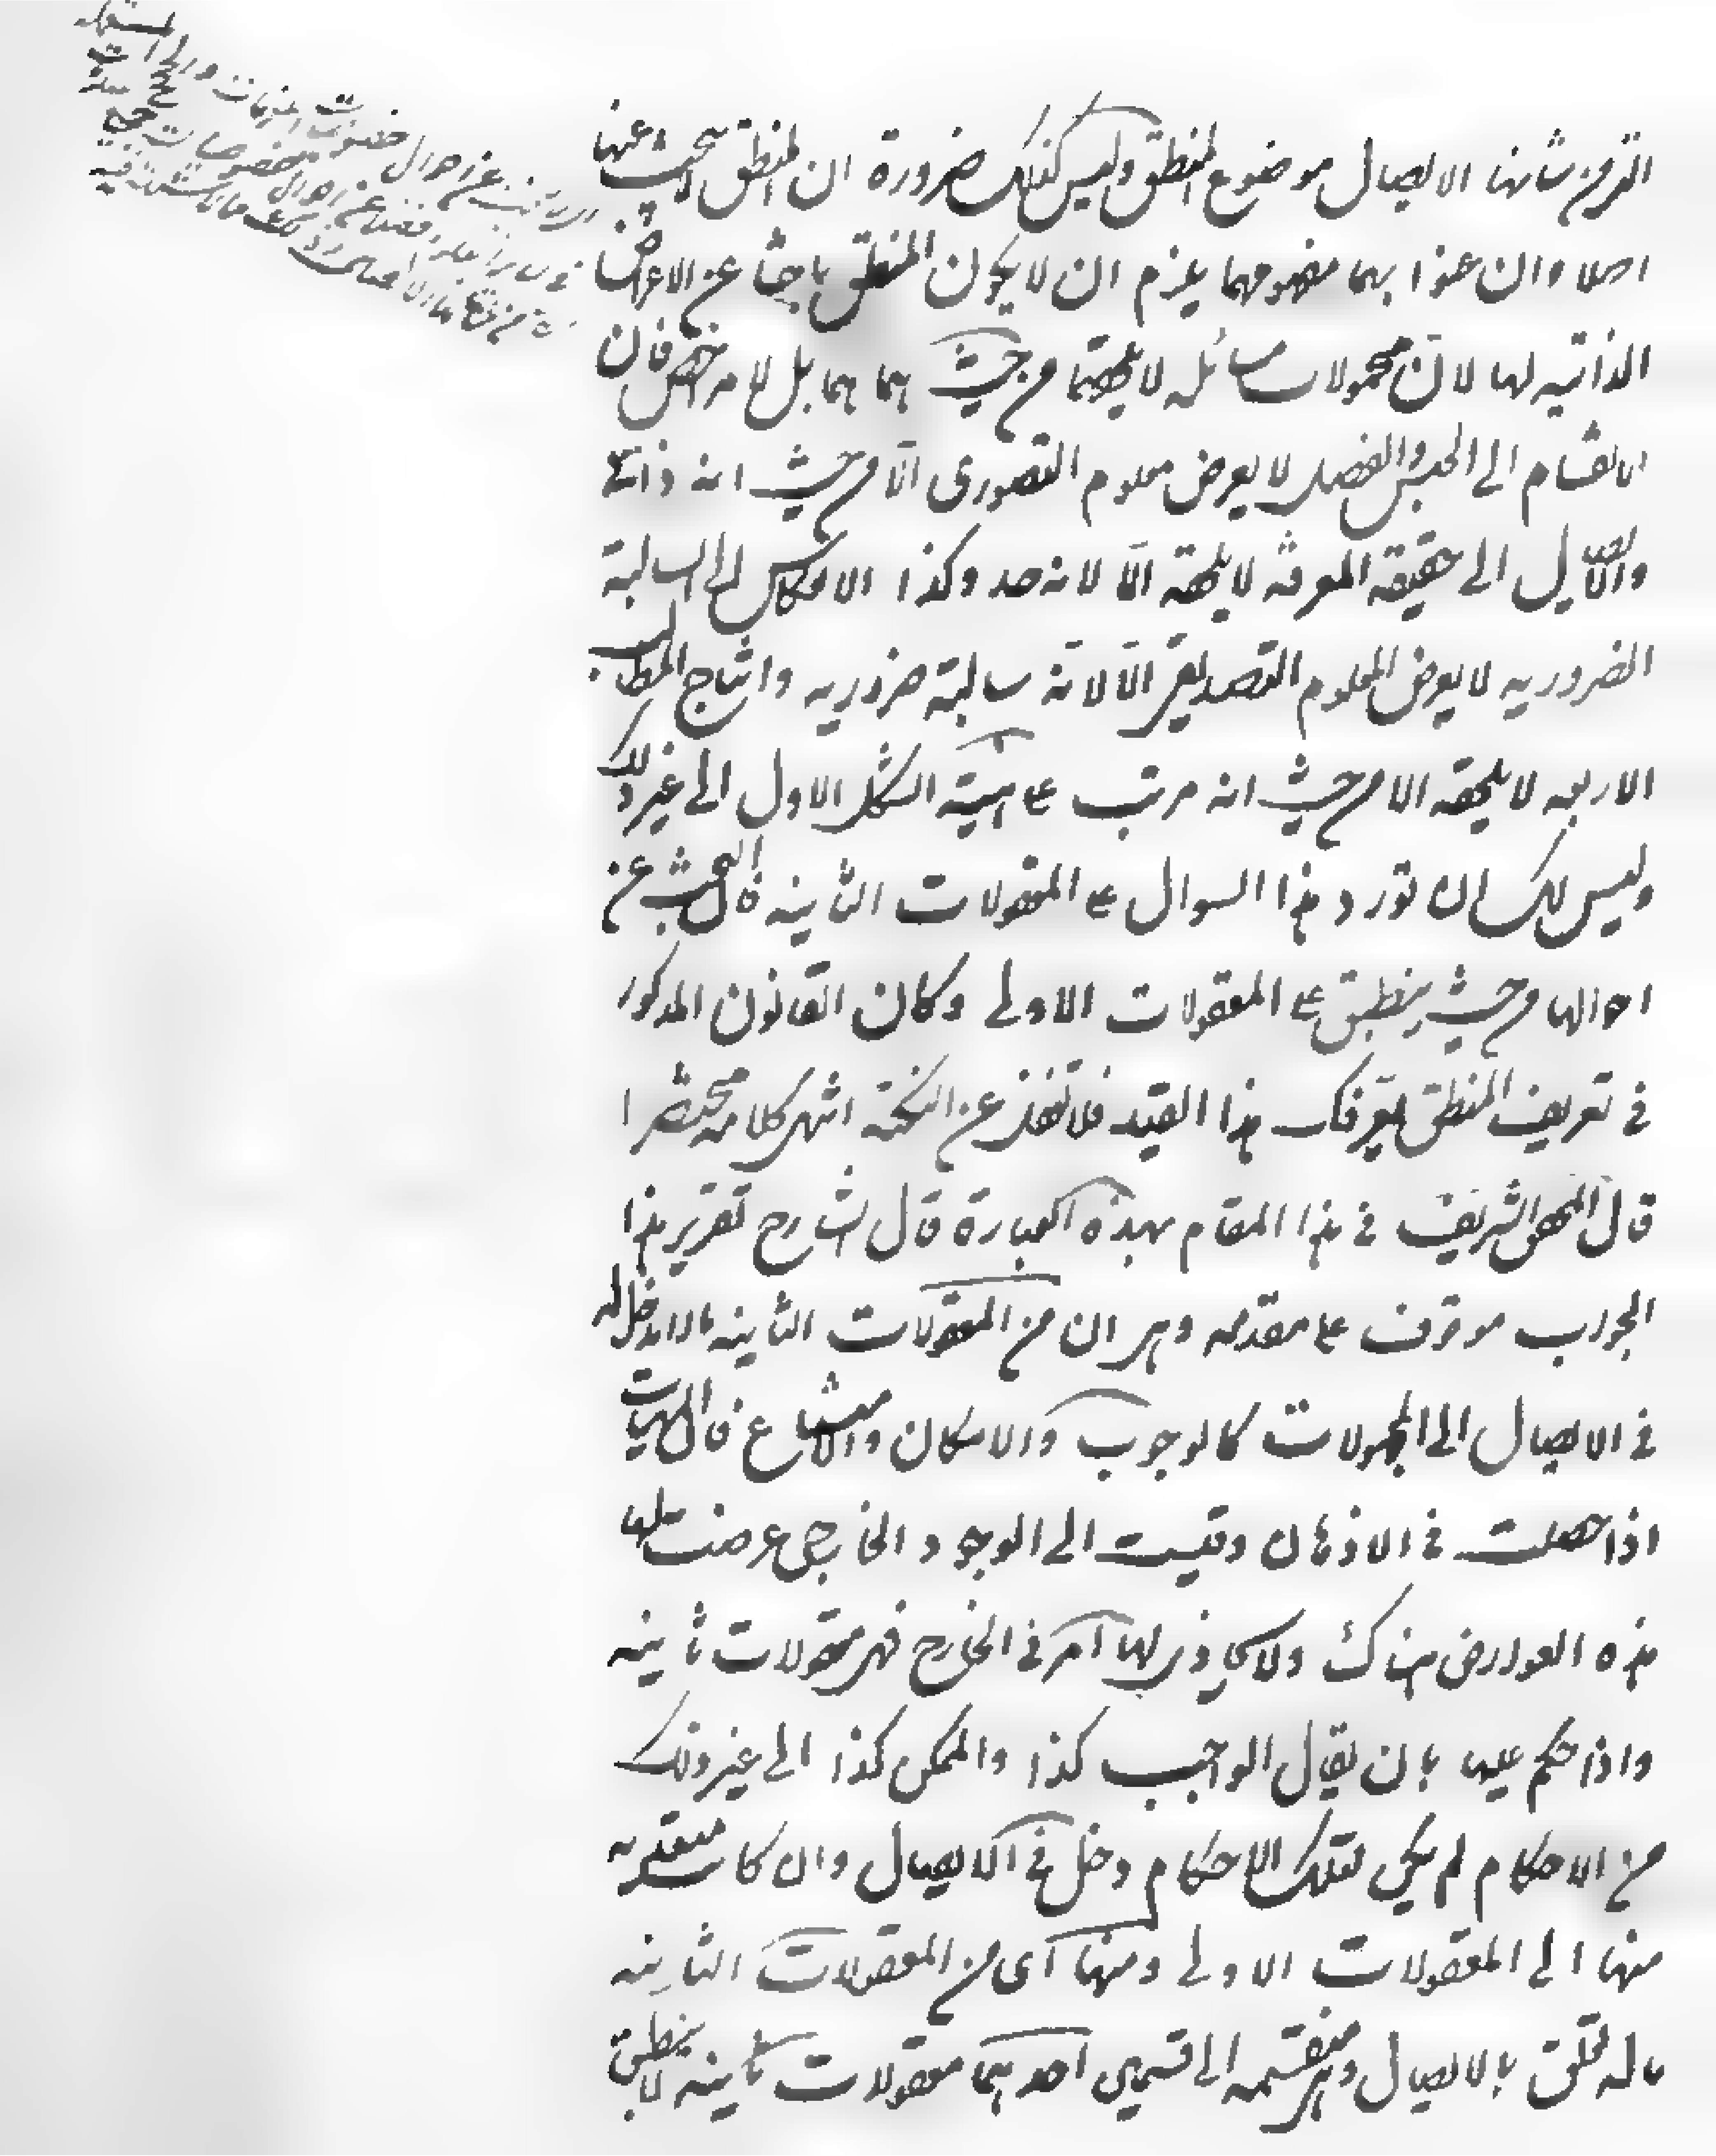 التي من شانها الايصال موضوع المنطق وليس كذلك ضرورة ان المنطق لا يبحث عنها
اصلا وان عنوا بهما مفهومهما يلزم ان لا يكون المنطق باحثا عن الاعراض
الذاتيه لهما لان محمولات مسائله لا يلحقهما من حيث هما هما بل لامر اخص فان
الانقسام الى الجنس والفصل لا يعرض معلوم التصورى الا من حيث انه ذاتي
والايصال الى حقيقة المعرف لا يلحقه الا لانه حد وكذا الانعكاس الى السالبة
الضروريه لا يعرض المعلوم التصديقي الا لانه سالبة ضروريه وانتاج المطالب
الاربعه لا يلحقه الا من حيث انه مرتب على هيئة الشكل الاول الى غير ذلك
وليس لك ان تورد هذا السوال على المعقولات الثانيه فان البحث عن
احوالها من حيث ينطبق على المعقولات الاولى وكان القانون المذكور
في تعريف المنطق يعرفك هذا القيد فلا تغفل عن النكتة انتهى كلامه مختصرا
قال المحقق الشريف في هذا المقام بهذه العبارة قال الشارح تقرير هذا
الجواب موقوف على مقدمه وهي ان من المعقولات الثانيه ما لا مدخل له
في الايصال الى المجهولات كالوجوب والامكان والامتناع فان المهيات
اذا حصلت في الاذهان وقيست الى الوجود الخارجي عرضت لها
هذه العوارض هناك ولا يحاذى بها امر في الخارج فهي معقولات ثانيه
واذا حكم عليها بان يقال الواجب كذا والممكن كذا الى غير ذلك
من الاحكام لم يكن لتلك الاحكام دخل في الايصال وان كانت متعديه
منها الى المعقولات الاولى ومنها اى من المعقولات الثانيه
ماله تعلق بالايصال وهي منقسمه الى قسمين احدهما معقولات ثانيه لا ينطبق